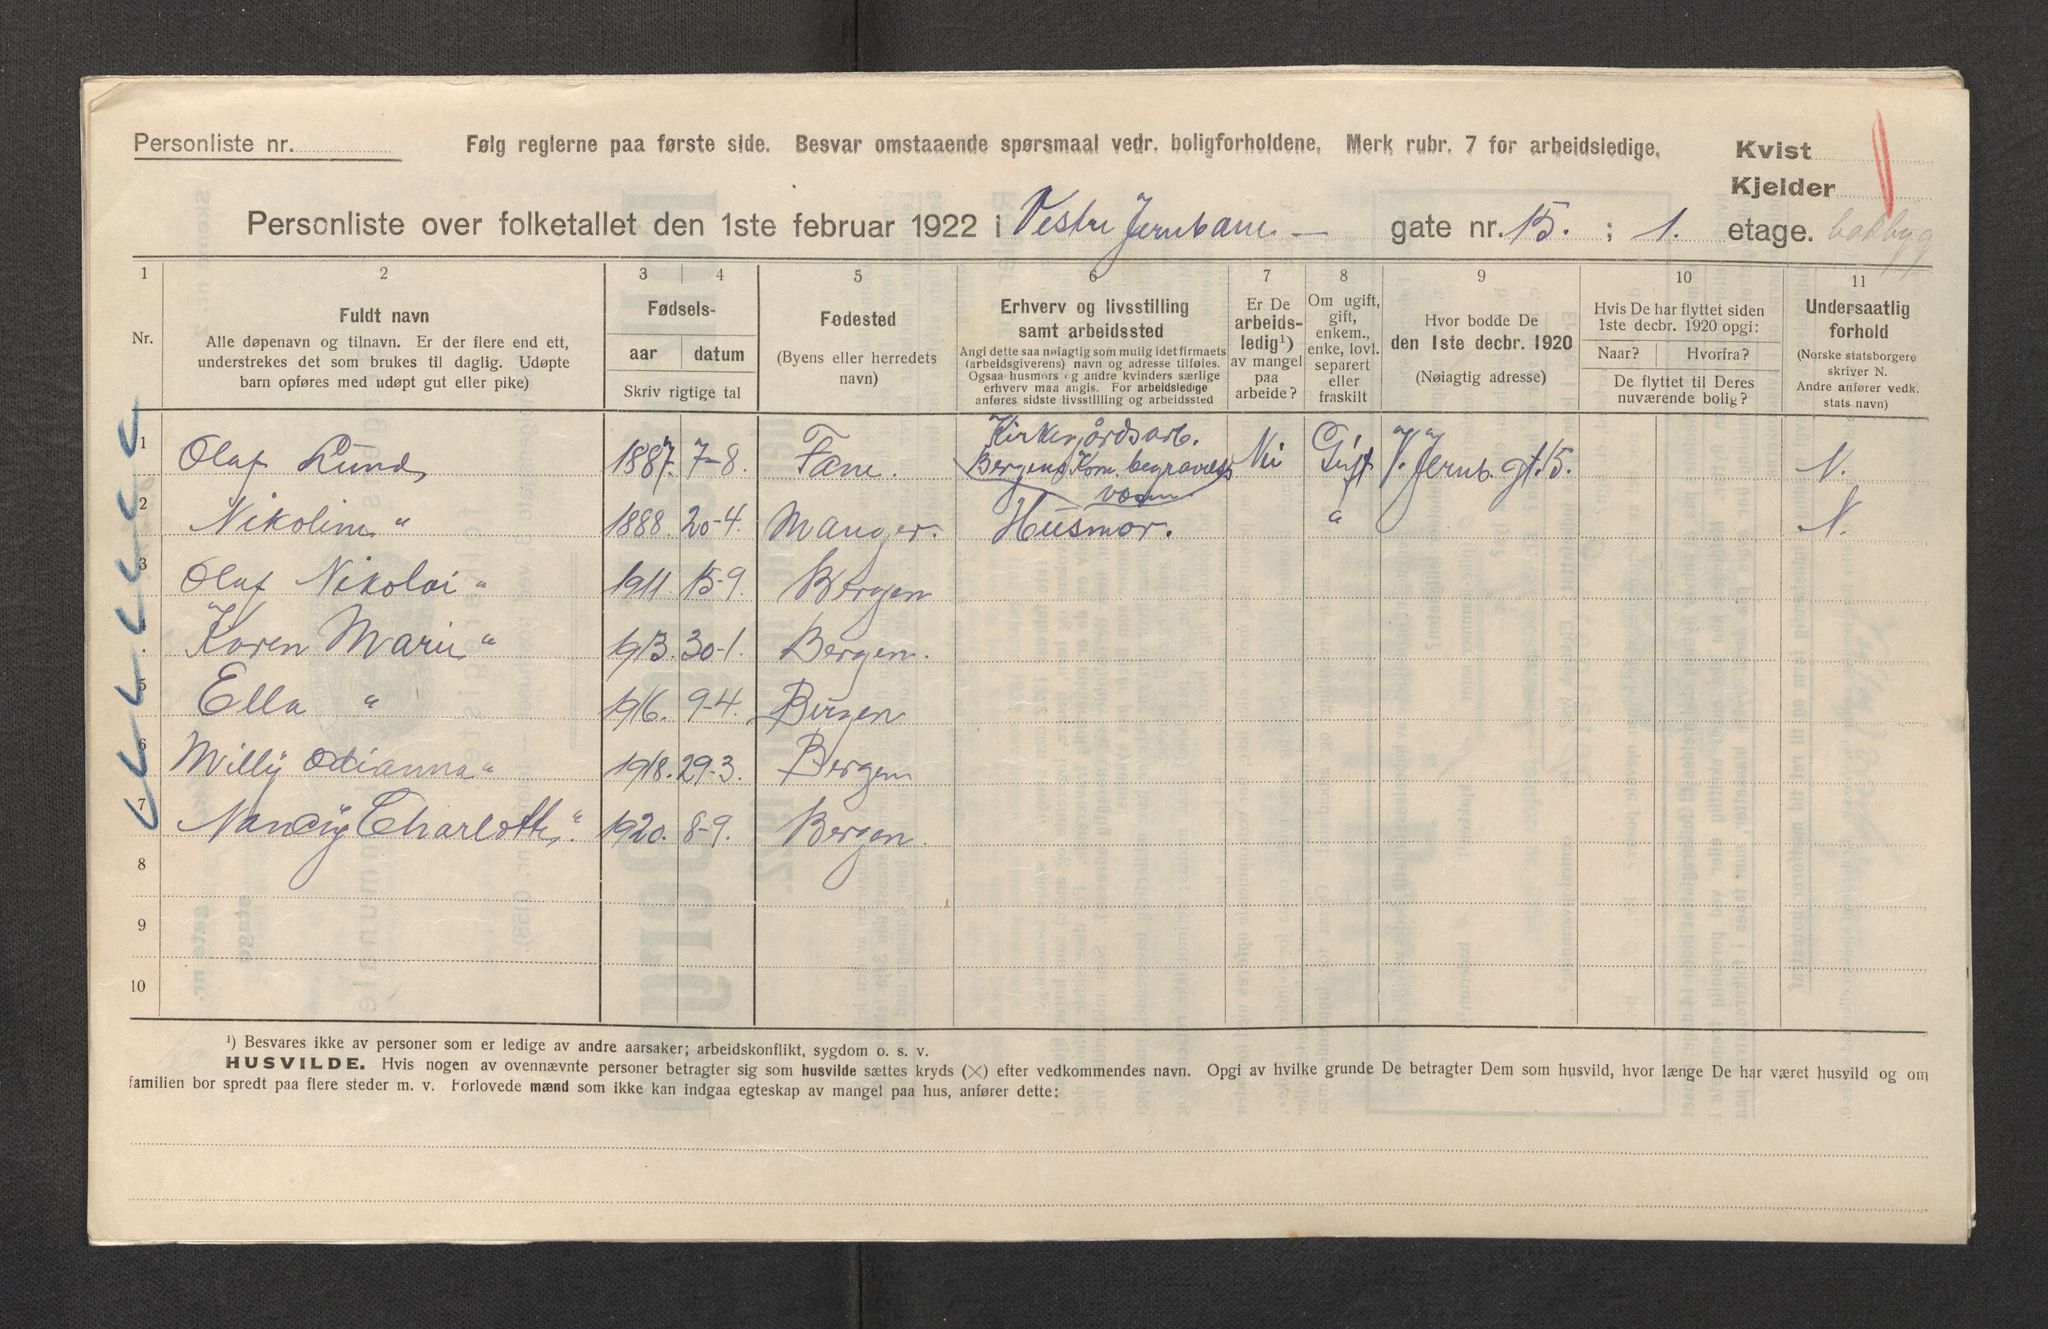 Personliste nr.
Følg reglerne paa første side. Besvar omstaaende spørsmaal vedr. boligforholdene. Merk rubr. 7 for arbeidsledige.
Kvist
Kjelder
Personliste over folketallet den 1ste februar 1922 i Vestre Jernbane — gate nr. 15. ; 1. etage. bakbyg
1 2 3 4 5 6 7 8 9 10 11
Nr.
Fuldt navn
Alle døpenavn og tilnavn. Er der flere end ett,
understrekes det som brukes til daglig. Udøpte
barn opføres med udøpt gut eller pike)
Fødsels-
aar datum
Skriv rigtige tal
Fødested
(Byens eller herredets
navn)
Erhverv og livsstilling
samt arbeidssted
Angi dette saa nøiagtig som mulig idet firmaets
(arbeidsgiverens) navn og adresse tilføies.
Ogsaa husmors og andre kvinders særlige
erhverv maa angis. For arbeidsledige
anføres sidste livsstilling og arbeidssted
Er De
arbeids-
ledig¹)
av mangel
paa
arbeide?
Om ugift,
gift,
enkem.,
enke, lovl.
separert
eller
fraskilt
Hvor bodde De
den 1ste decbr. 1920
(Nøiagtig adresse)
Hvis De har flyttet siden
1ste decbr. 1920 opgi:
Naar? Hvorfra?
De flyttet til Deres
nuværende bolig?
Undersaatlig
forhold
(Norske statsborgere
skriver N.
Andre anfører vedk.
stats navn)
1 Olaf Lund 1887. 7-8. Fane. Kirkegårdsarb. Bergens Kom. begravelses væsen Nei Gift V. Jernb. gt. 15. N.
2 Nikoline " 1888. 20-4. Manger. Husmor. " N.
3 Olaf Nikolai " 1911. 15-9. Bergen
4 Karen Marie " 1913. 30-1. Bergen.
5 Ella " 1916. 9-4. Bergen
6 Willy Odianna " 1918. 29-3. Bergen
7 Nancy Charlotte " 1920. 8-9. Bergen.
8
9
10
¹) Besvares ikke av personer som er ledige av andre aarsaker; arbeidskonflikt, sygdom o. s. v.
HUSVILDE. Hvis nogen av ovennævnte personer betragter sig som husvilde sættes kryds (×) efter vedkommendes navn. Opgi av hvilke grunde De betragter Dem som husvild, hvor længe De har været husvild og om
familien bor spredt paa flere steder m. v. Forlovede mænd som ikke kan indgaa egteskap av mangel paa hus, anfører dette: